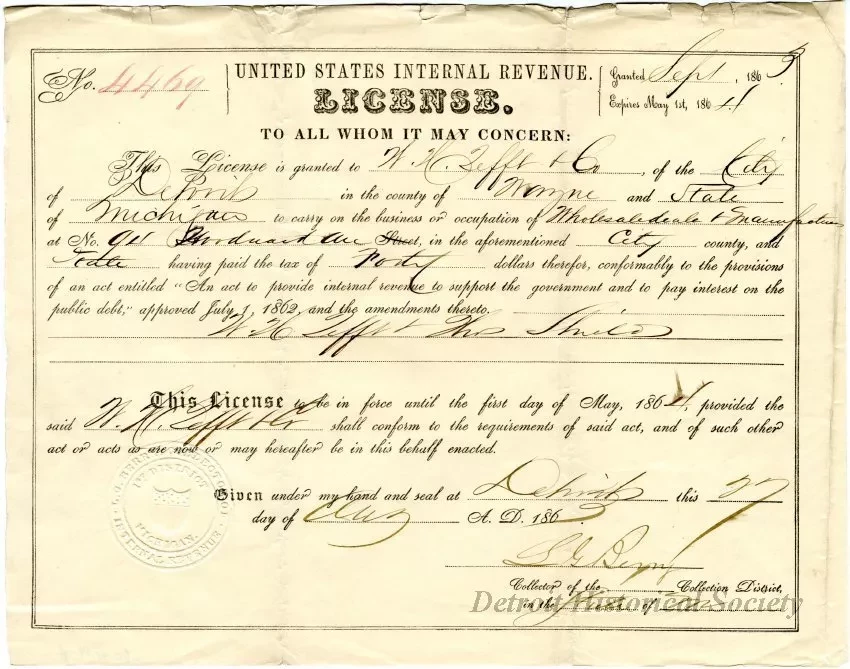 No. 4469
UNITED STATES INTERNAL REVENUE.
LICENSE.
Granted Sept, 1863
Expires May 1st, 1864
TO ALL WHOM IT MAY CONCERN:
This License is granted to W. H. Tefft & Co, of the City
of Detroit in the county of Wayne and State
of Michigan to carry on the business or occupation of Wholesale deale & Manufacturer
at No. 94 Woodward Ave Street, in the aforementioned City county, and
State having paid the tax of Forty dollars therefor, conformably to the provisions
of an act entitled "An act to provide internal revenue to support the government and to pay interest on the
public debt," approved July 1, 1862, and the amendments thereto.
W H Tefft & Thos Shields
This License to be in force until the first day of May, 1864, provided the
said W. H. Tefft & Co shall conform to the requirements of said act, and of such other
act or acts as are now or may hereafter be in this behalf enacted.
Given under my hand and seal at Detroit this 27
day of A. D. 1863
Collector of the Collection District,
in the State of
1ST DISTRICT
MICHIGAN.
INTERNAL REVENUE
Detroit Historical Society